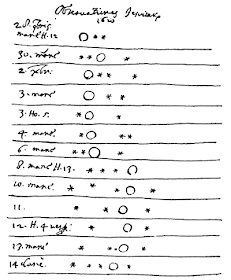 Observationes Jesuitae
1610
2. J. Foris
mane H. 12 O **
30. mane ** O *
2. xbr: O ** *
3. mane O * *
3. Ho. 5. * O *
4. mane * O **
6. mane ** O *
8. mane H. 13. * * * O
10. mane * * * O *
11. * * O *
12. H. 4 vesp: * O *
13. mane * ** O *
14 Casse. * * * O *